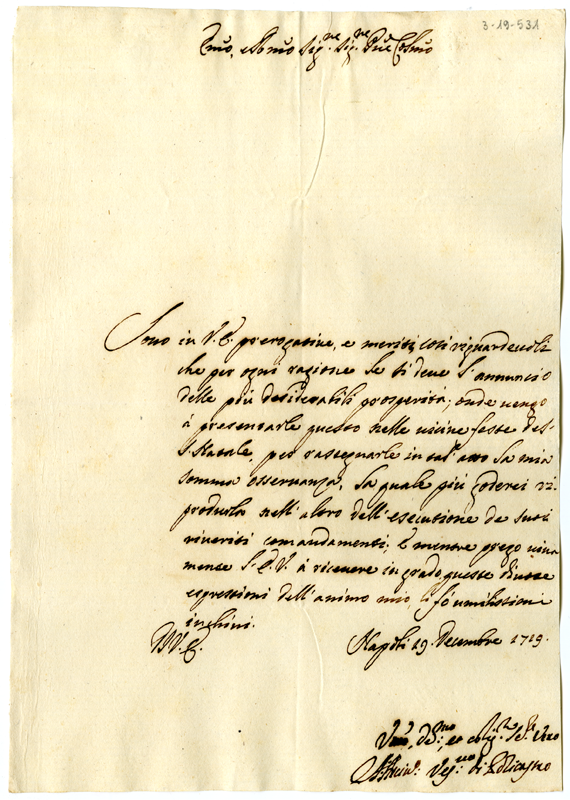 3-19-531
Emo, e Rmo Sig.re Sig.re Pne Colmo
Sono in V. E. prerogative, e meriti così riguardevoli
che per ogni ragione se li deve l'annuncio
delle più desiderabili prosperità; onde vengo
à presentarle questo nelle vicine feste del
S. Natale, per rassegnarle in tal' atto la mia
somma osservanza, la quale più goderei ri-
produrla nell'altro dell'esecutione de suoi
riveriti comandamenti; E mentre prego viva
mente l'E. V. à ricevere in grado queste divote
espressioni dell'animo mio, li fò umilissimi
inchini.
D V. E. Napoli 19. Decembre 1719.
Vmo, Dmo, et oblig.mo Se.re Vero
Vesc.vo di Policastro